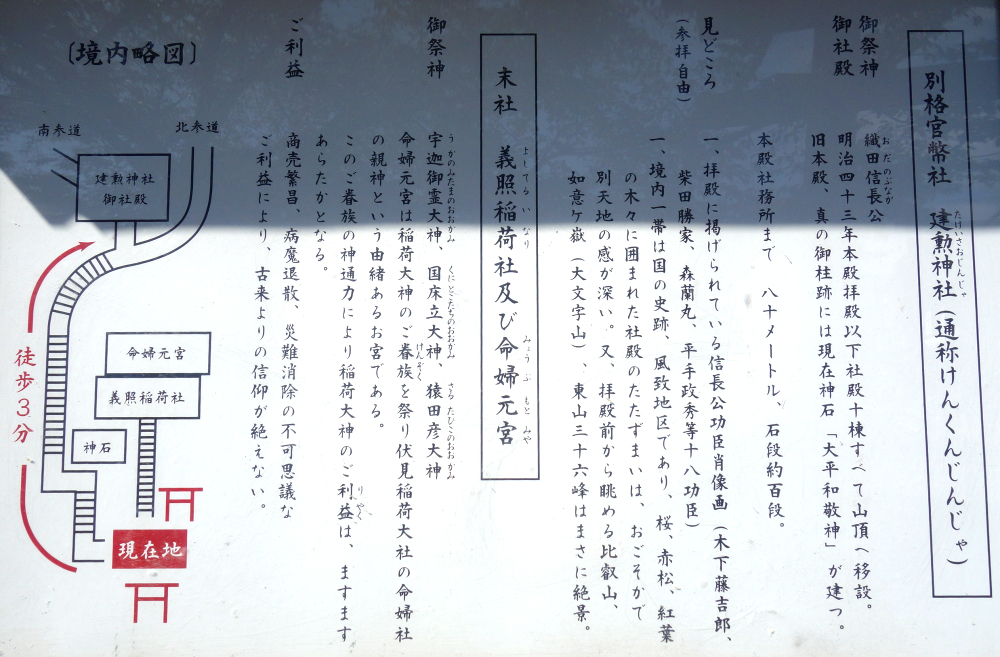 別格官幣社 建勲神社(通称けんくんじんじゃ)
たけいさおじんじゃ
御祭神 織田信長公
おだのぶなが
御社殿 明治四十三年本殿拝殿以下社殿十棟すべて山頂へ移設。
旧本殿、真の御柱跡には現在神石「大平和敬神」が建つ。
本殿社務所まで 八十メートル、石段約百段。
見どころ 一、拝殿に掲げられている信長公功臣肖像画(木下藤吉郎、
(参拝自由) 柴田勝家、森蘭丸、平手政秀等十八功臣)
一、境内一帯は国の史跡、風致地区であり、桜、赤松、紅葉
の木々に囲まれた社殿のたたずまいは、おごそかで
別天地の感が深い。又、拝殿前から眺める比叡山、
如意ケ嶽(大文字山)、東山三十六峰はまさに絶景。
末社 義照稲荷社及び命婦元宮
よしてるいなり みょうぶもとみや
御祭神 宇迦御霊大神、国床立大神、猿田彦大神
うかのみたまのおおかみ くにとこたちのおおかみ さるたひこのおおかみ
命婦元宮は稲荷大神のご眷族を祭り伏見稲荷大社の命婦社
けんぞく
の親神という由緒あるお宮である。
このご眷族の神通力により稲荷大神のご利益は、ますます
りやく
あらたかとなる。
ご利益 商売繁昌、病魔退散、災難消除の不可思議な
ご利益により、古来よりの信仰が絶えない。
〔境内略図〕
北参道
南参道
建勲神社
御社殿
命婦元宮
義照稲荷社
神石
徒歩3分
現在地